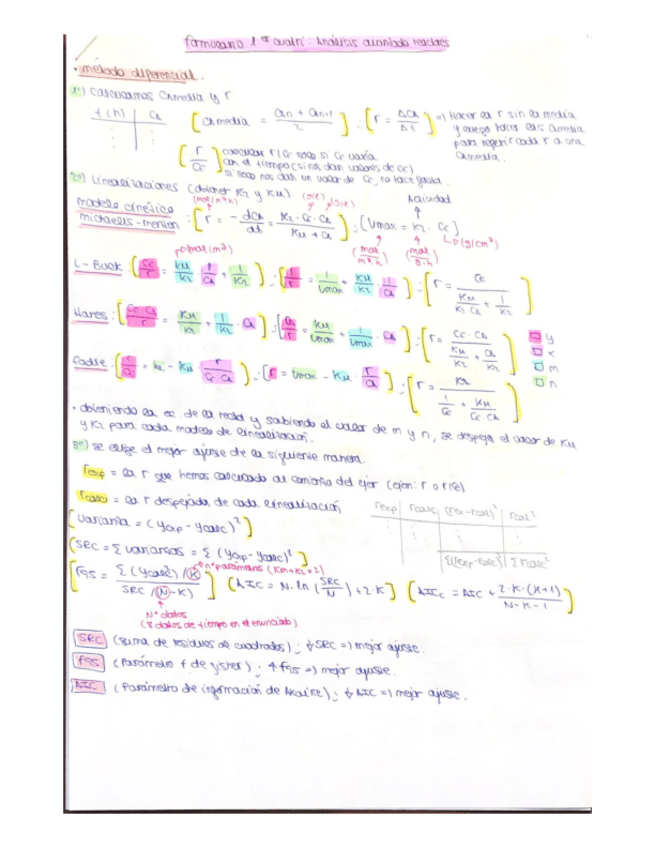 Formulario 1er cuatri: Análisis avanzado reactores
• método diferencial.
1º) Calculamos CAmedia y r
t (h) | CA
[CAmedia = (Cn + Cn+1)/2] ; [r = ΔCA/Δt] => Hacer la r sin la media
y luego hacer la CAmedia
para referir cada r a una
CAmedia.
[r/Cc] calcular r/Cc solo si Cc varía
con el tiempo (si nos dan valores de Cc)
si solo nos dan un valor de Cc, no hace falta.
2º) Linealizaciones (obtener K2 y KM)
modelo cinético
michaelis-menten : [r = - dCA/dt = K2 · Cc · CA / (KM + CA)] ; [Vmax = K2 · Cc]
(mol/m³h) (g/L) (g/L) Actividad
(mol/m³·h) (mol/g·h) (g/cm³)
L-Burk : [Cc/r = KM/K2 · 1/CA + 1/K2] ; [1/r = 1/Vmax + KM/K2 · 1/CA] ; [r = Cc / (KM/(K2·CA) + 1/K2)]
Hanes : [Cc·CA/r = KM/K2 + 1/K2 · CA] ; [CA/r = KM/Vmax + 1/Vmax · CA] ; [r = Cc·CA / (KM/K2 + CA/K2)]
Eadie : [r/Cc = K2 - KM · r/(Cc·CA)] ; [r = Vmax - KM · r/CA] ; [r = K2 / (1/Cc + KM/(Cc·CA))]
y
x
m
n
• obteniendo la ec. de la recta y sabiendo el valor de m y n, se despeja el valor de KM
y K2 para cada modelo de linealización.
3º) se elige el mejor ajuste de la siguiente manera:
rexp = la r que hemos calculado al comienzo del ejer (ejem: r o r/Cc)
rcalc = la r despejada de cada linealización
rexp | rcalc | (rex-rcal)² | rcal²
Σ(rexp-rcalc)² | Σ rcalc²
[varianza = (yexp - ycalc)²]
[SRC = Σ varianzas = Σ (yexp - ycalc)²]
nº parámetros (KM + K2 = 2)
[F95 = (Σ (ycalc²) / K) / (SRC / (N-K))] [AIC = N · ln (SRC/N) + 2·K] [AICc = AIC + 2·K·(K+1) / (N-K-1)]
Nº datos
(8 datos de tiempo en el enunciado)
SRC (suma de residuos al cuadrado) ; ↓ SRC => mejor ajuste.
F95 (Parámetro F de Fisher) ; ↑ F95 => mejor ajuste.
AIC (Parámetro de información de Akaike) ; ↓ AIC => mejor ajuste.